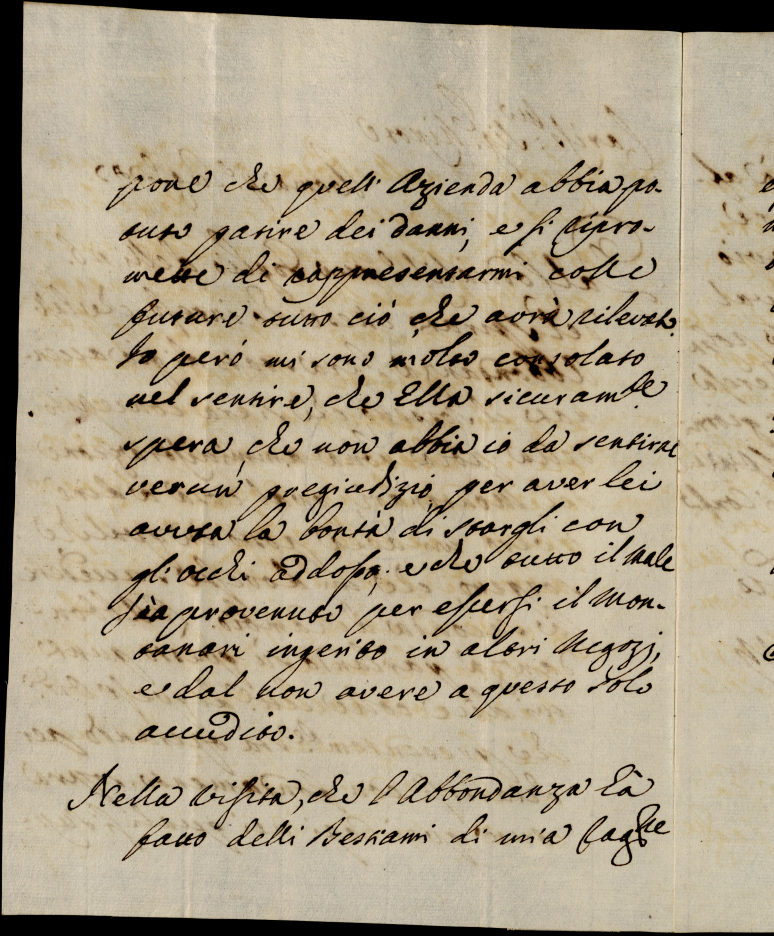 pone che quell' Azienda abbia po-
tuto patire dei danni, e si ripro-
mette di rappresentarmi colle
future tutto ciò, che avrà rilevato.
Io però mi sono molto consolato
nel sentire, che Ella sicuram.te
spera, che non abbia io da sentirne
verun pregiudizio per aver lei
avuta la bontà di stargli con
gli occhi addosso; e che tutto il male
sia provenuto per essersi il Mon-
tanari ingerito in altri Negozj,
e dal non avere a questo solo
accudito.
Nella visita, che l'Abbondanza hà
fatto delli Bestiami di mia